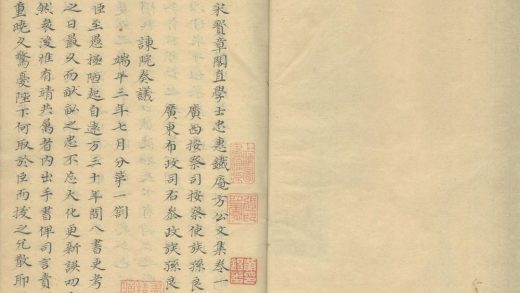 宋寶章閣直學士忠惠鐵庵方公文集卷一
廣西按察司按察使族孫良
廣東布政司右參政族孫良
諫院奏議
端平三年七月分第一劄
臣至愚極陋起自遠方三十年間八書吏考
之日最久而猷畝之忠不忘天化更新誤四
然衮淩惟有靖共為者内出手書俾司言責
重晚又驚憂陛下何取於臣而援之冗散即